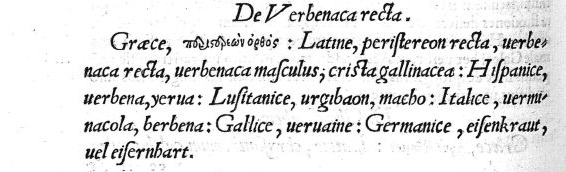 De Verbenaca recta.
Græce, περιστερεὼν ὀρθὸς : Latine, peristereon recta, uerbe-
naca recta, uerbenaca masculus, crista gallinacea : Hispanice,
uerbena, yerua : Lusitanice, urgibaon, macho : Italice, uermi-
nacola, berbena : Gallice, ueruaine : Germanice, eisenkraut,
uel eisernhart.